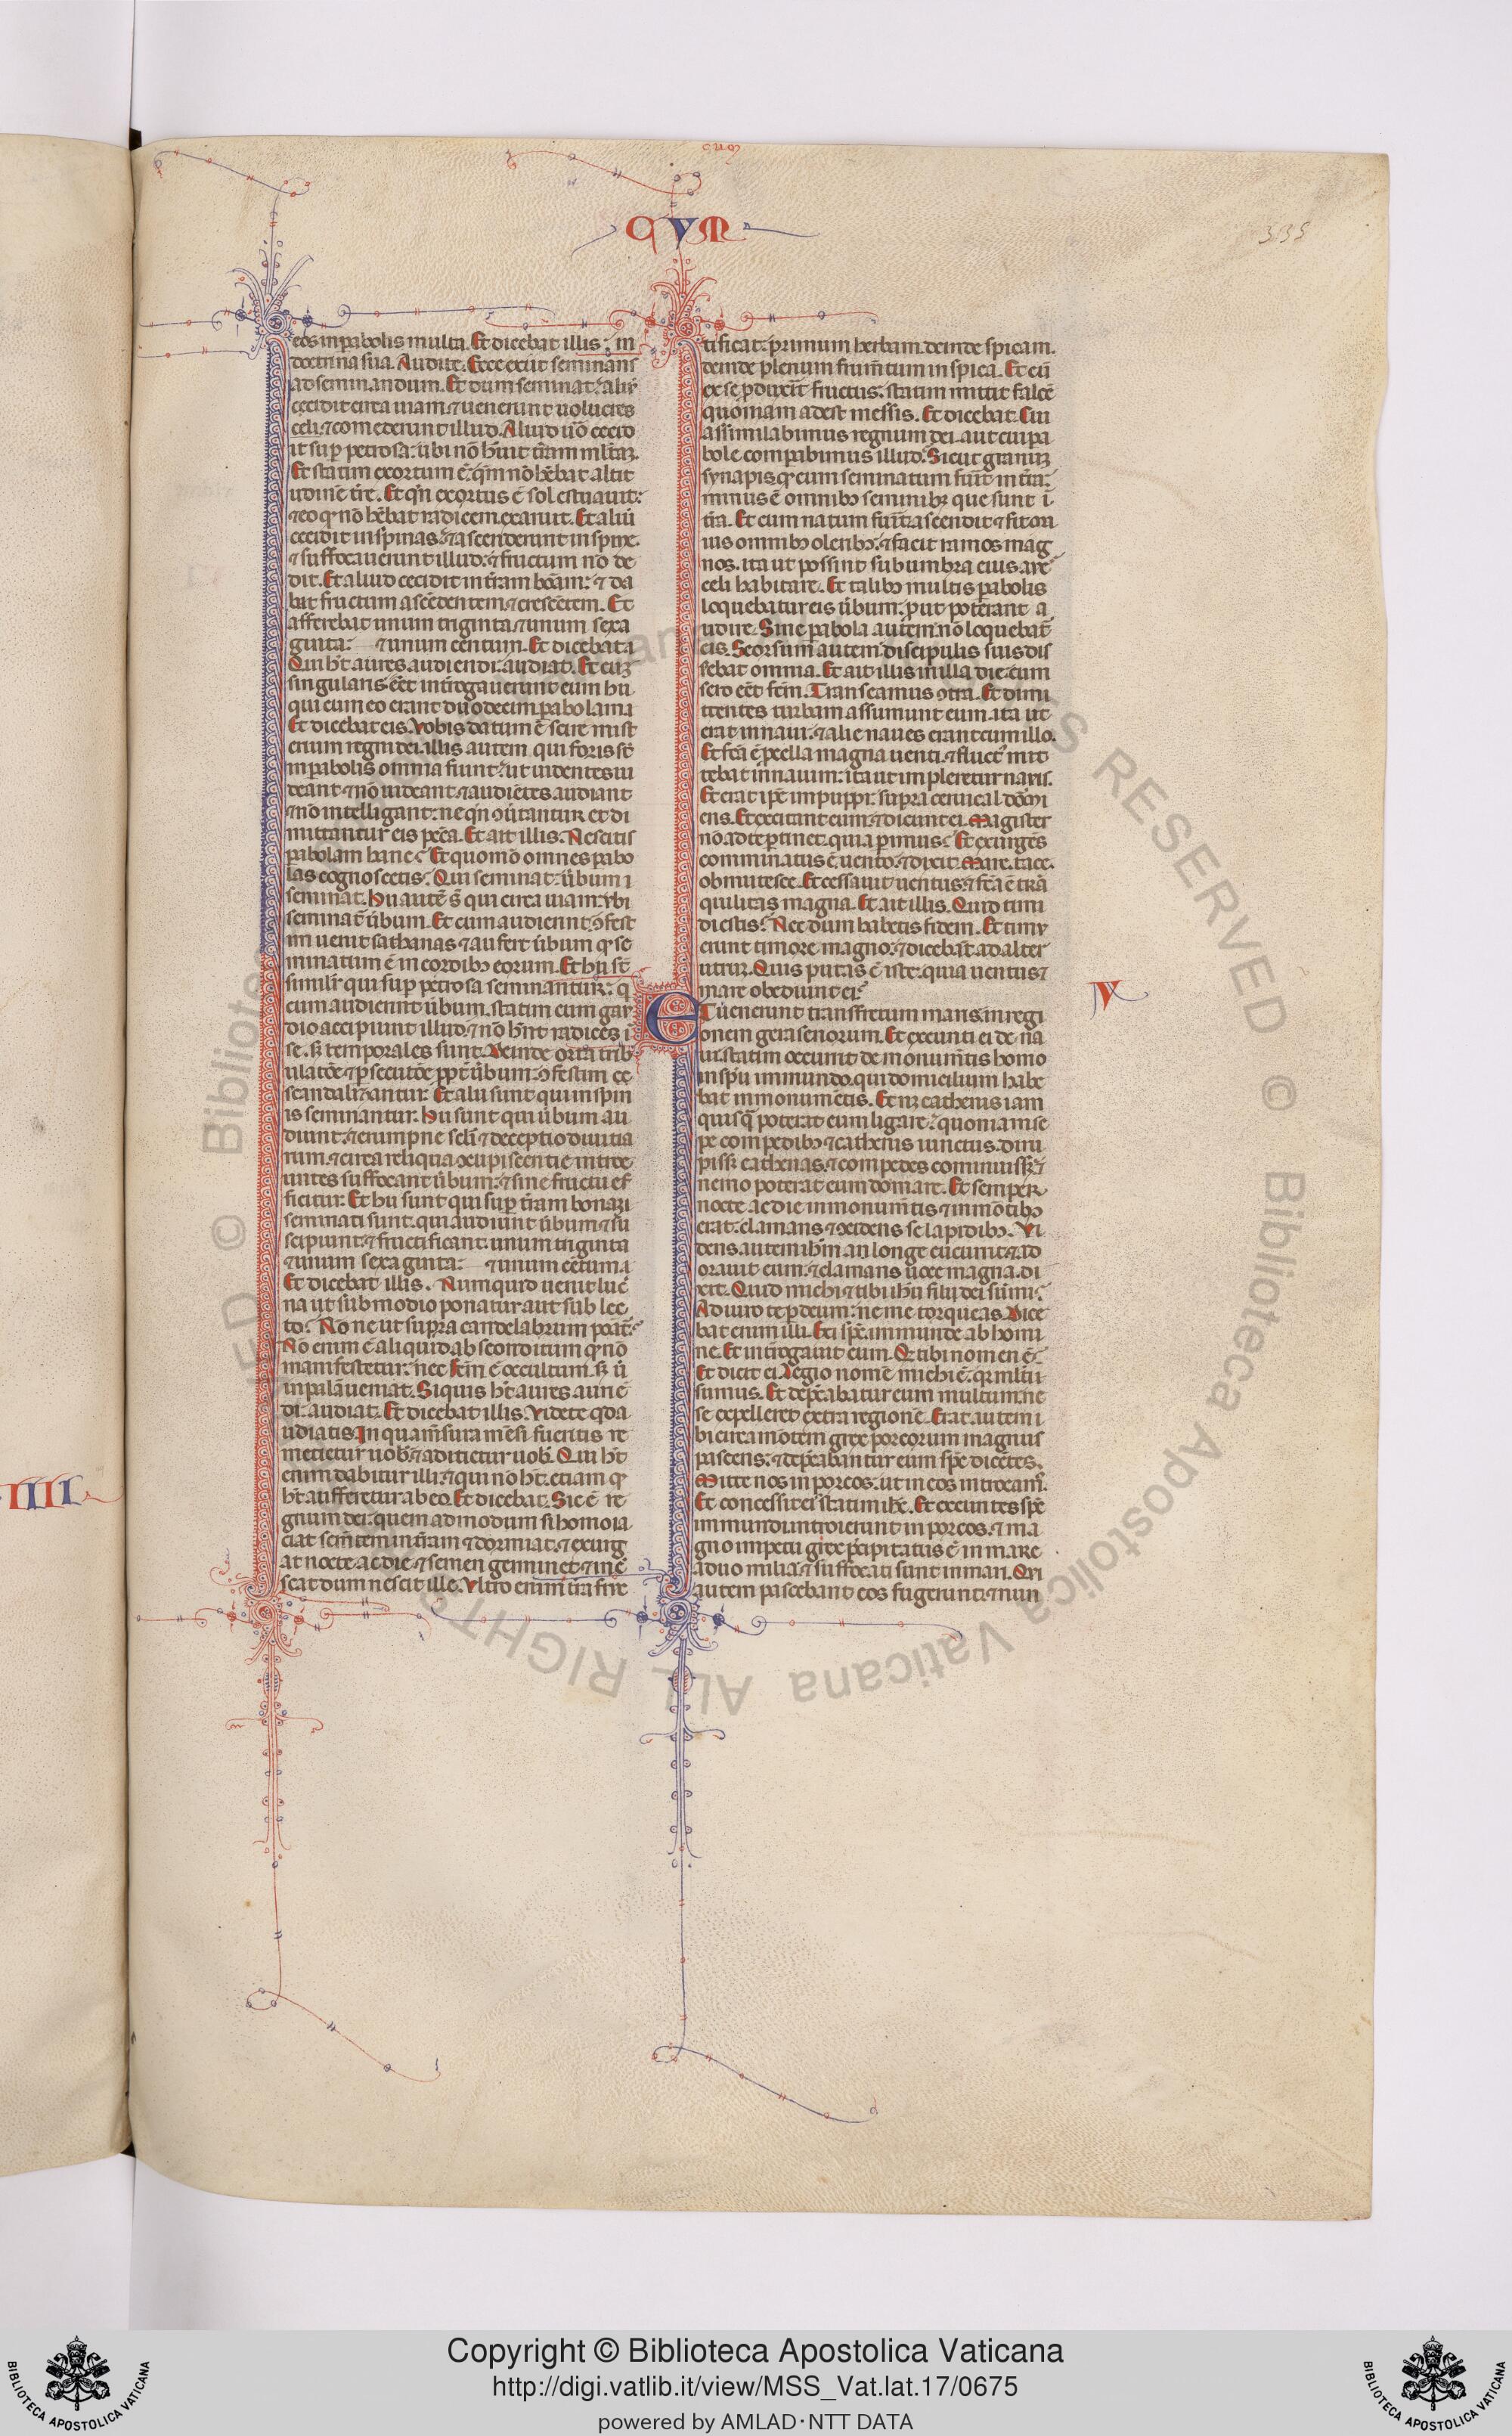 QVM
335
eos in pabolis multa. Et dicebat illis. in
doctrina sua. Audite. Ecce exiit seminans
ad seminandum. Et dum seminat: aliđ
cecidit circa uiam. ⁊ uenerunt uolucres
celi. ⁊ comederunt illud. Aliud uō cecid
it sup petrosa: ubi nō hūit t̄ram mltaꝫ.
Et statim exortum ē. qm̄ nō hēbat altit
udinē tr̄e. Et qn̄ exortus ē sol estuauit:
⁊ eo ꝙ nō hēbat radicem. exaruit. Et aliud
cecidit in spinas. ⁊ ascenderunt in spine.
⁊ suffocauerunt illud. ⁊ fructum nō de
dit. Et aliud cecidit in t̄ram bonam: ⁊ da
bat fructum ascēdentem. ⁊ crescētem. Et
afferebat unum triginta. ⁊ unum sexa
ginta: ⁊ unum centum. Et dicebat
Qui ht aures audiendi. audiat. Et cuꝫ
singularis eēt int̄rogauerunt eum hii
qui cum eo erant duodecim pabolam
Et dicebat eis. Vobis datum ē scire mist
erium regni dei. illis autem qui foris st̄
in pabolis omnia fiunt. ut uidentes ui
deant ⁊ nō uideant. ⁊ audiētes audiant
⁊ nō intelligant: ne qn̄ ꝯūtantur et di
mittantur eis pcc̄a. Et ait illis. Nescitis
pabolam hanc? Et quomō omnes pabo
las cognoscetis? Qui seminat: ūbum
seminat. Hii autē s̄t qui circa uiam. ubi
seminat̄ ūbum. Et cum audierint. ꝯfest
im uenit sathanas ⁊ aufert ūbum ꝙ se
minatum ē in cordibꝰ eorum. Et hii st̄
similit̄ qui sup petrosa seminantur: q
cum audierint ūbum. statim cum gau
dio accipiunt illud. ⁊ nō hn̄t radices ī
se. sꝫ temporales sunt. Deinde orta trib
ulatōe ⁊ psecutōe ppt̄ ūbum: ꝯfestim
scandalizantur. Et alii sunt qui in spin
is seminantur. Hii sunt qui ūbum au
diunt: ⁊ erumpne sc̄li ⁊ deceptio diuitia
rum ⁊ circa reliqua ꝯcupiscentie introe
untes suffocant ūbum: ⁊ sine fructu ef
ficitur. Et hii sunt qui sup t̄ram bonam
seminati sunt. qui audiunt ūbum ⁊ su
scipiunt: ⁊ fructificant. unum triginta
⁊ unum sexaginta: ⁊ unum cētum
Et dicebat illis. Numquid uenit luc̄
na ut sub modio ponatur aut sub lec
to? Nōne ut supra candelabrum ponat̄?
Nō enim ē aliquid absconditum ꝙ nō
manifestetur: nec fcm̄ ē occultum. sꝫ ut
in palā ueniat. Siquis ht aures aurie
di. audiat. Et dicebat illis. Videte qd a
udiatis. In qua m̄sura mēsi fueritis re
metietur uobꝭ ⁊ adicietur uobꝭ. Qui ht
enim dabitur illi. ⁊ qui nō ht. etiam ꝙ
ht auferetur ab eo. Et dicebat. Sic ē re
gnum dei. quem admodum si homo ia
ciat sem̄tem in t̄ram ⁊ dormiat. ⁊ exurg
at nocte ac die. ⁊ semen germinet ⁊ inc̄
scat dum nescit ille. Vltro enim t̄ra fruc
tificat: primum herbam. deinde spicam.
deinde plenum frum̄tum in spica. Et cū
ex se pduxerit fructus: statim mittit falcē
quoniam adest messis. Et dicebat. Cui
assimilabimus regnum dei. aut cui pa
bole compabimus illud? Sicut granuꝫ
synapis ꝙ cum seminatum fuīt in t̄ra:
minus ē omnibꝰ seminibꝰ que sunt ī
t̄ra. Et cum natum fuīt ascendit ⁊ fit ma
ius omnibꝰ oleribꝰ. ⁊ facit ramos mag
nos. ita ut possint sub umbra eius aues
celi habitare. Et talibꝰ multis pabolis
loquebatur eis ūbum: put poterant a
udire. Sine pabola autem nō loquebat̄
eis. Seorsum autem discipulis suis dis
serebat omnia. Et ait illis in illa die. cum
sero eēt fcm̄. Transeamus ꝯtra. Et dimi
ttentes turbam assumunt eum. ita ut
erat in naui. ⁊ alie naues erant cum illo.
Et fcā ē pcella magna uenti. ⁊ fluctꝰ mit
tebat in nauim: ita ut impleretur nauis.
Et erat ipe in puppi. supra ceruical dormi
ens. Et excitant eum. ⁊ dicunt ei. Magister
nō ad te ptinet. quia perimus? Et exurgēs
comminatus ē uento. ⁊ dixit. Mare. tace.
obmutesce. Et cessauit uentus. ⁊ fcā ē trā
quilitas magna. Et ait illis. Quid timi
di estis? Necdum habetis fidem. Et timu
erunt timore magno. ⁊ dicebāt ad alter
utrū. Quis putas ē iste: quia uentus ⁊
mare obediunt ei?
V
ETuenerunt transfretum maris in regi
onem gerasenorum. Et exeunti ei de na
ui. statim occurrit de monum̄tis homo
in spū immundo. qui domicilium habe
bat in monumētis. Et nꝫ cathenis iam
quisq̄ poterat eum ligare. quoniam se
pe compedibꝰ ⁊ cathenis uinctus. diru
pissꝫ cathenas. ⁊ compedes cominuissꝫ ⁊
nemo poterat eum domare. Et semper
nocte ac die in monum̄tis ⁊ in mōtibꝰ
erat: clamans ⁊ ꝯcidens se lapidibꝰ. Vi
dens autem ihm̄ a longe cucurrit ⁊ ad
orauit eum. ⁊ clamans uoce magna. di
xit. Quid michi ⁊ tibi ihū fili dei sūmi?
Adiuro te p deum: ne me torqueas. Dice
bat enim illi. Exi spc̄. immunde ab homi
ne. Et int̄rogauit eum. Qd tibi nomen ē?
Et dicit ei. Legio nomē michi ē. qꝫ mlti
sumus. Et depc̄abatur eum multum. ne
se expelleret extra regionē. Erat autem i
bi circa mōtem grex porcorum magnus
pascens. ⁊ depc̄abantur eum spc̄ dicētes.
Mitte nos in porcos. ut in eos introeamꝰ.
Et concessit ei statim ihc̄. Et exeuntes spc̄
immundi. introierunt in porcos. ⁊ ma
gno impetu grex pcipitatus ē in mare
ad duo milia. ⁊ suffocati sunt in mari. Qui
autem pascebant eos fugerunt. ⁊ nun
IIII
Copyright © Biblioteca Apostolica Vaticana
http://digi.vatlib.it/view/MSS_Vat.lat.17/0675
powered by AMLAD·NTT DATA
BIBLIOTECA APOSTOLICA VATICANA
BIBLIOTECA APOSTOLICA VATICANA
© Biblioteca Apostolica Vaticana ALL RIGHTS RESERVED